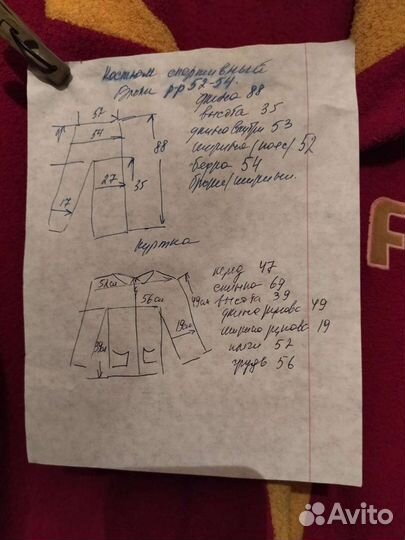 Костюм спортивный
Брюки рр 52-54.
длина 88
высота 35
длина внутри 53
ширина/пояс/ 52
бедра 54
57
54
88
27
35
17
Куртка
перед 47
спинка 69
высота 39
длина рукова 49
ширина рукова 19
плечи 52
грудь 56
52см
56см
49см
19см
39см
Avito